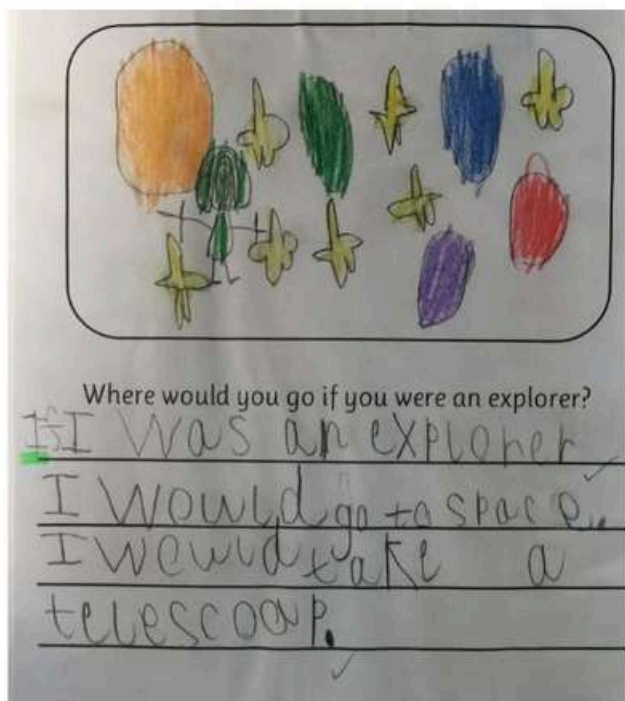 Where would you go if you were an explorer?
If I was an explorer
I would go to space.
I would take a
telescoap.